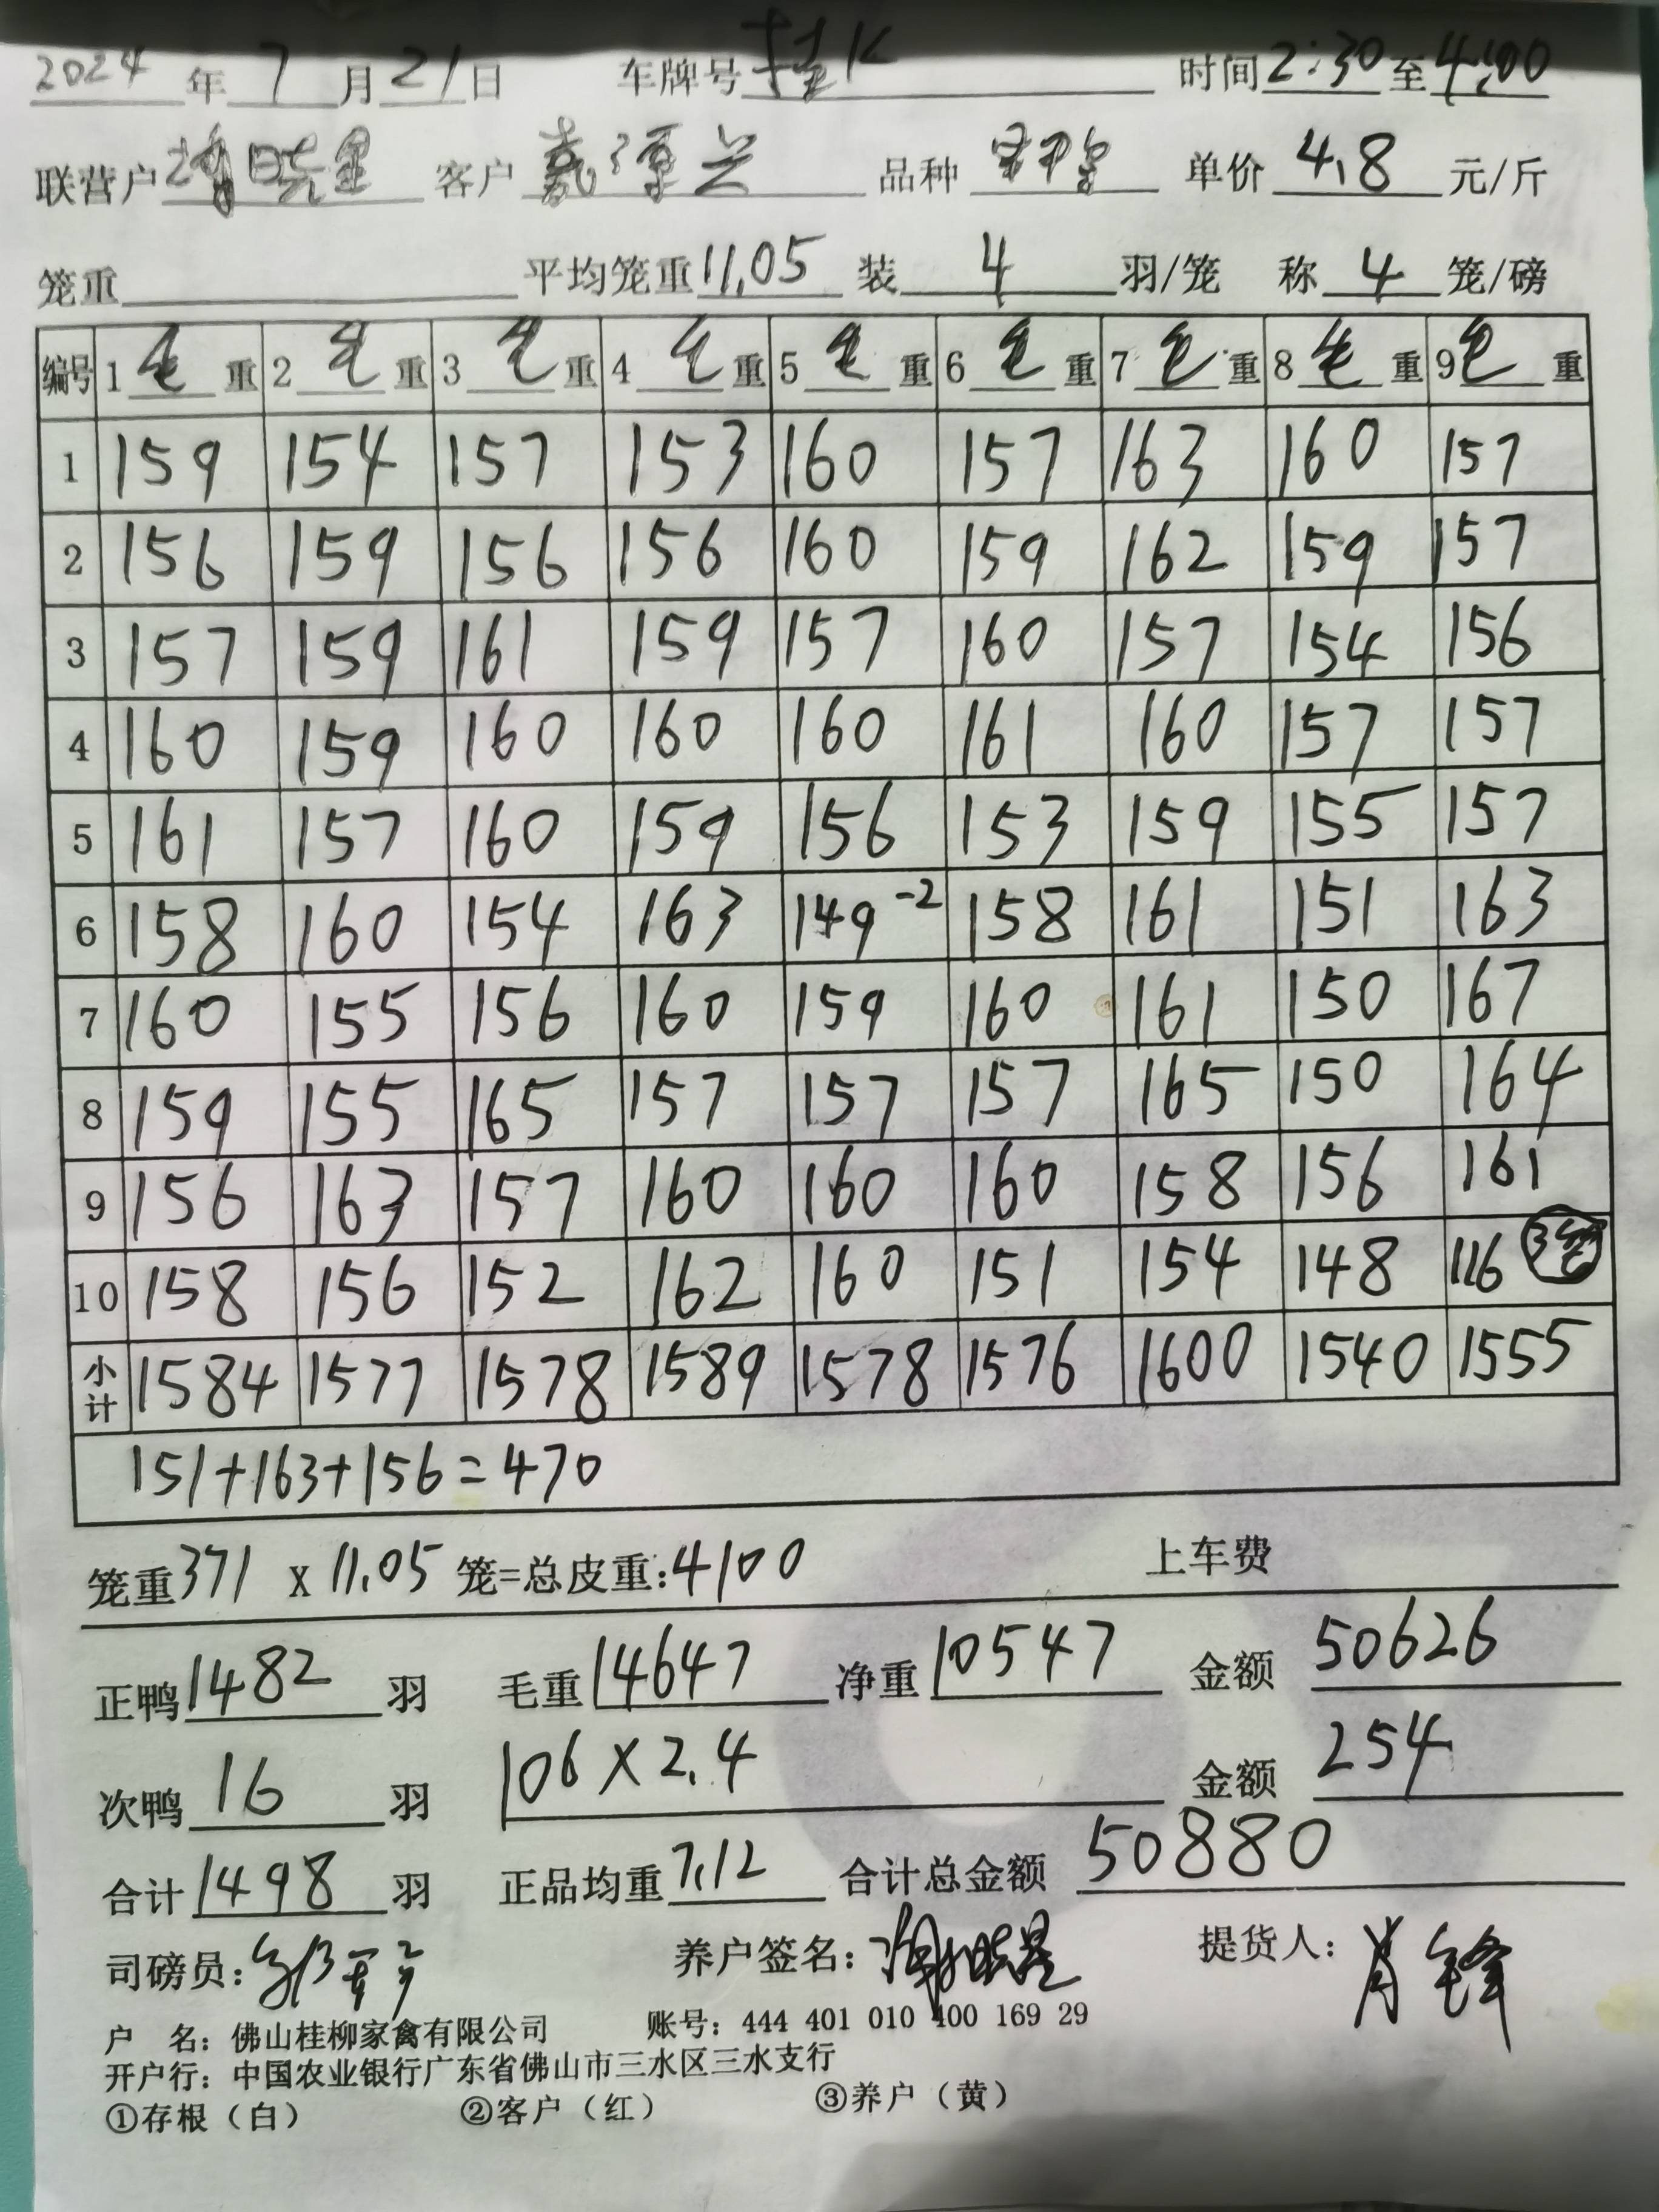 2024 年 7 月 21 日 车牌号 时间 2:30 至 4:00
联营户 晓星 客户 源兴 品种 单价 4.8 元/斤
笼重 平均笼重 11.05 装 4 羽/笼 称 4 笼/磅
编号 1 毛 重 2 毛 重 3 毛 重 4 毛 重 5 毛 重 6 毛 重 7 毛 重 8 毛 重 9 毛 重
1 159 154 157 153 160 157 163 160 157
2 156 159 156 156 160 159 162 159 157
3 157 159 161 159 157 160 157 154 156
4 160 159 160 160 160 161 160 157 157
5 161 157 160 159 156 153 159 155 157
6 158 160 154 163 149 -2 158 161 151 163
7 160 155 156 160 159 160 161 150 167
8 159 155 165 157 157 157 165 150 164
9 156 163 157 160 160 160 158 156 161
10 158 156 152 162 160 151 154 148 116 3笼
小计 1584 1577 1578 1589 1578 1576 1600 1540 1555
151+163+156=470
笼重 371 x 11.05 笼=总皮重: 4100 上车费
正鸭 1482 羽 毛重 14647 净重 10547 金额 50626
次鸭 16 羽 106 × 2.4 金额 254
合计 1498 羽 正品均重 7.12 合计总金额 50880
司磅员: 养户签名: 提货人: 肖锋
户 名: 佛山桂柳家禽有限公司 账号: 444 401 010 400 169 29
开户行: 中国农业银行广东省佛山市三水区三水支行
①存根（白） ②客户（红） ③养户（黄）